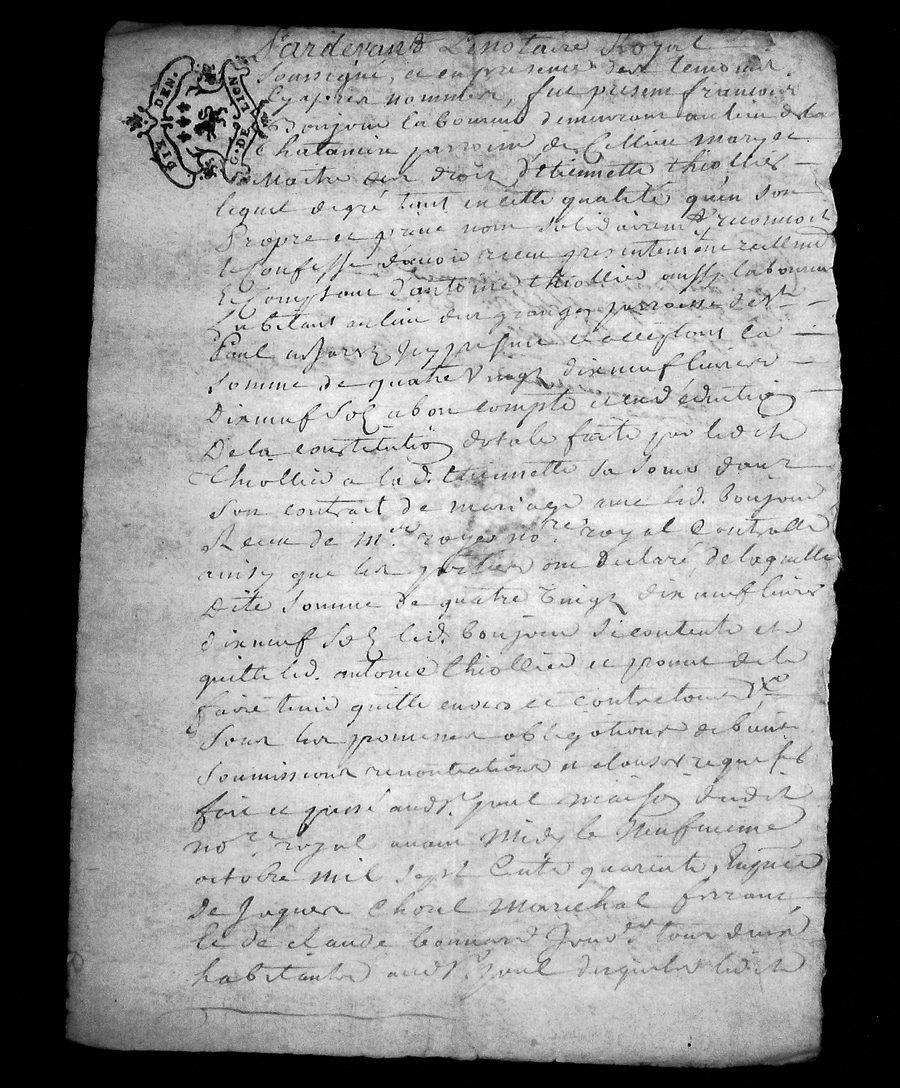 DIX DEN.
G. DE LION
Pardevant Le notaire Royal
soussigné, et en presence des temoins
Cyapres nommés, fut present francois
Bonjour laboureur demeurant au lieu de la
Chalamere parroisse de Cellieu mary et
Maitre des droits d'Etiennette thiollier
lequel de gré tant en cette qualité qu'en son
Propre et privé nom solidairemt reconnoit
et Confesse d'avoir receu presentement reellemt
et Comptant d'antoine thiollier aussy laboureur
habitant au lieu des granges parroisse de St
Paul en Jarez Icy present et acceptant la
somme de quatre Vingt dix neuf livres
Dix neuf Sols a bon compte et en déduction
De la constitution dotale faite par ledit
thiollier a la d. Etiennette sa soeur dans
son contrat de mariage avec led. bonjour
Receu de Me. royer nore. royal Controllé
ainsy que les parties ont declaré, de laquelle
Dite somme de quatre Vingt dix neuf livres
dix neuf Sols led. bonjour se contente et
quitte led. antoine thiollier et promet de le
faire tenir quitte envers et contre tous
sous les promesses obligations de biens
soumissions renontiations et clauses requises
fait et passé audt. St. paul maison dudit
nore. royal avant Midy le Neufvieme
octobre mil sept Cents quarente, En presence
De Jaques Choul Marechal ferrant
et de claude bonnard tous deux
habitants audt. St. paul desquels ledit